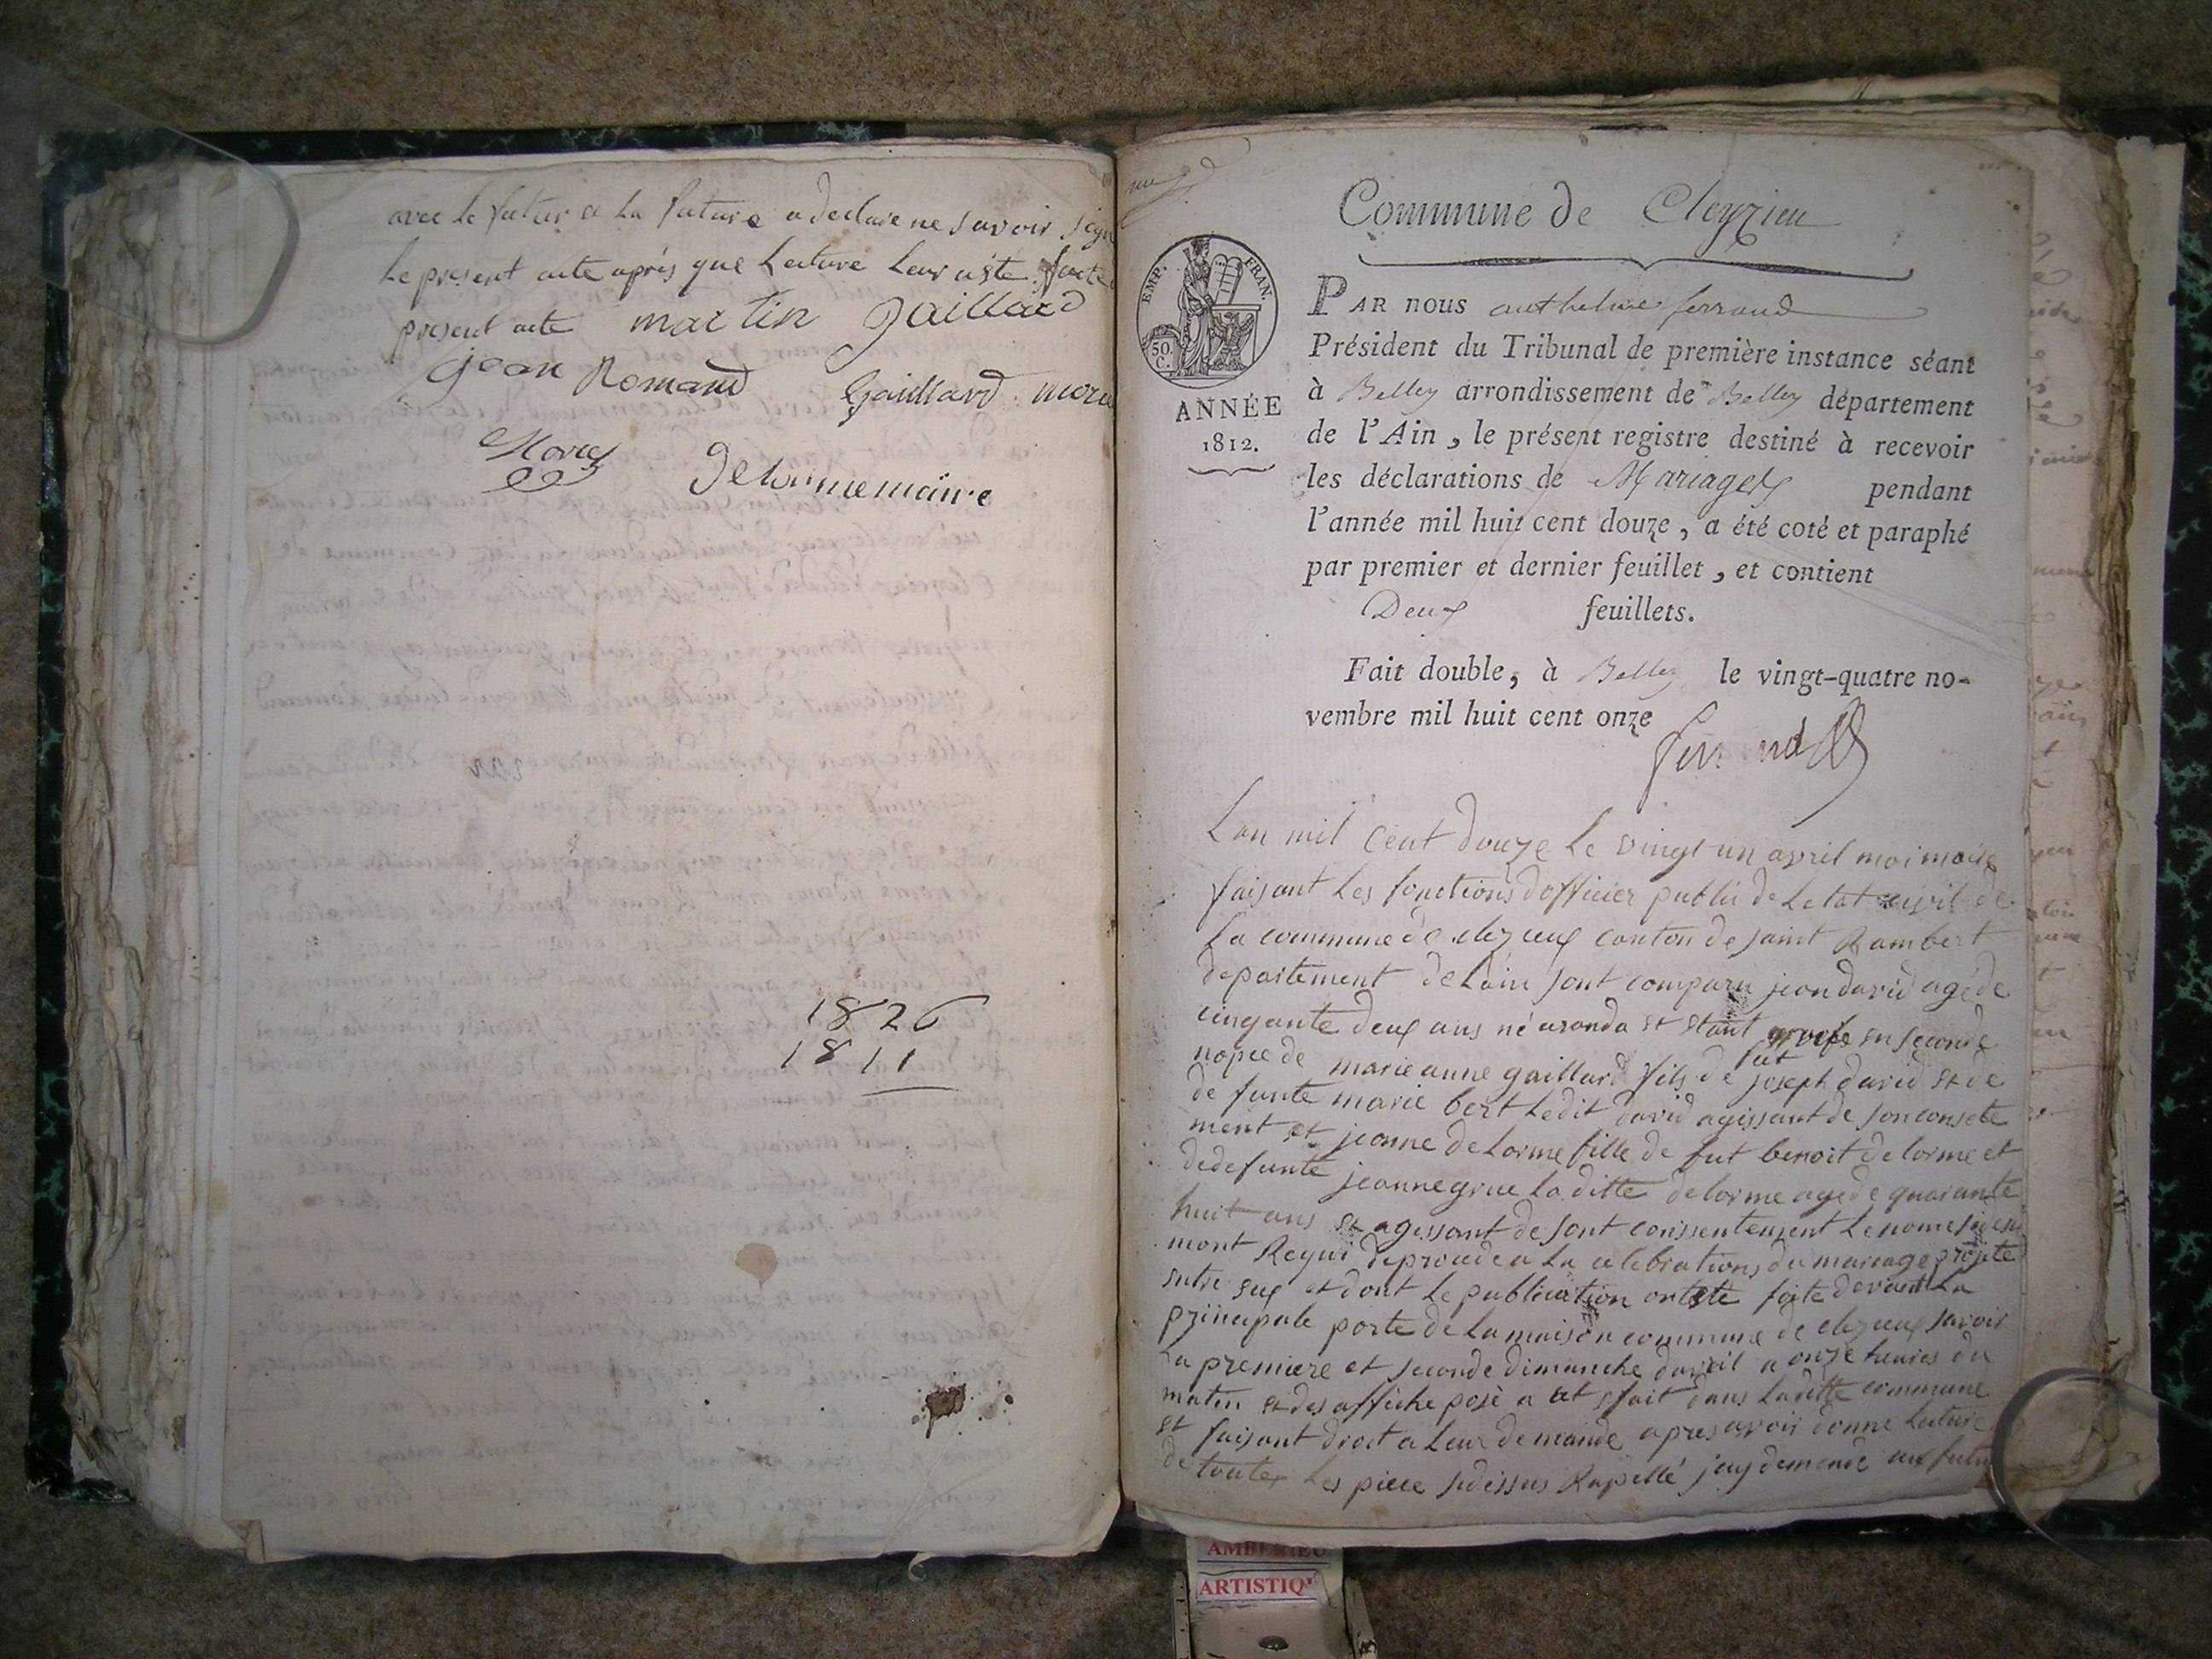 avec le futur et la future a declare ne savoir sign
le present acte aprés que lecture leur a éte faite
present acte martin Gaillard
jean Romand Gaillard
Delorme maire
1826
1811
Commune de Cleyzieu
EMP. FRAN.
50. C.
ANNÉE
1812.
PAR nous anthelme ferrand
Président du Tribunal de première instance séant
à Belley arrondissement de Belley département
de l'Ain, le présent registre destiné à recevoir
les déclarations de Mariages pendant
l'année mil huit cent douze, a été coté et paraphé
par premier et dernier feuillet, et contient
Deux feuillets.
Fait double, à Belley le vingt-quatre no-
vembre mil huit cent onze
ferrand
Lan mil cent douze le vingt un avril moi maire
faisant les fonctions dofficier public de letat civil de
la commune de cleyzeux canton de saint Rambert
departement de lain sont comparu jean david agé de
cinqante deux ans né aranda et etant en seconde
nopce de marie anne gaillard fils de fut joseph david et de
defunte marie bert ledit david agissant de son consete
ment et jeanne delorme fille de fut benoit delorme et
dedefunte jeanne grue laditte delorme agede quarante
huit ans et agissant de sont conssentement le nome
mont Requi de procede a la celebrations du mariage projete
entre eux et dont le publication ont ete faite devant la
principale porte de la maison commune de cleyzeux savoir
la premiere et seconde dimanche davril a onze heures du
matin et des affiche posé a cet efait dans laditte commune
et faisant droit a leur demande apres avoir donne lecture
de toutes les piece sidessus Rapellé jay demende aux futu
AMBERIEU
ARTISTIQ